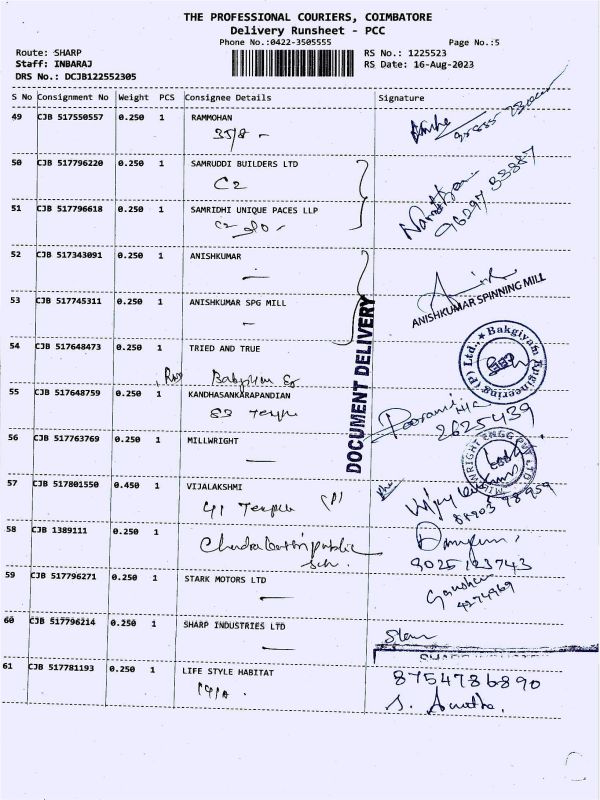 THE PROFESSIONAL COURIERS, COIMBATORE
Delivery Runsheet - PCC
Phone No.:0422-3505555 Page No.:5
Route: SHARP RS No.: 1225523
Staff: INBARAJ RS Date: 16-Aug-2023
DRS No.: DCJB122552305
S No Consignment No Weight PCS Consignee Details Signature
49 CJB 517550557 0.250 1 RAMMOHAN
35/8 -
50 CJB 517796220 0.250 1 SAMRUDDI BUILDERS LTD
C2
51 CJB 517796618 0.250 1 SAMRIDHI UNIQUE PACES LLP
C2
52 CJB 517343091 0.250 1 ANISHKUMAR
ANISHKUMAR SPINNING MILL
53 CJB 517745311 0.250 1 ANISHKUMAR SPG MILL
DOCUMENT DELIVERY
54 CJB 517648473 0.250 1 TRIED AND TRUE
Bakgiyam Engineering (P) Ltd.,
55 CJB 517648759 0.250 1 KANDHASANKARAPANDIAN
2625439
56 CJB 517763769 0.250 1 MILLWRIGHT
MILWRIGHT ENGG PVT LTD
57 CJB 517801550 0.450 1 VIJAYALAKSHMI
41 Temple (P)
58 CJB 1389111 0.250 1
9025123743
59 CJB 517796271 0.250 1 STARK MOTORS LTD
4274969
60 CJB 517796214 0.250 1 SHARP INDUSTRIES LTD
61 CJB 517781193 0.250 1 LIFE STYLE HABITAT
8754786890
S.